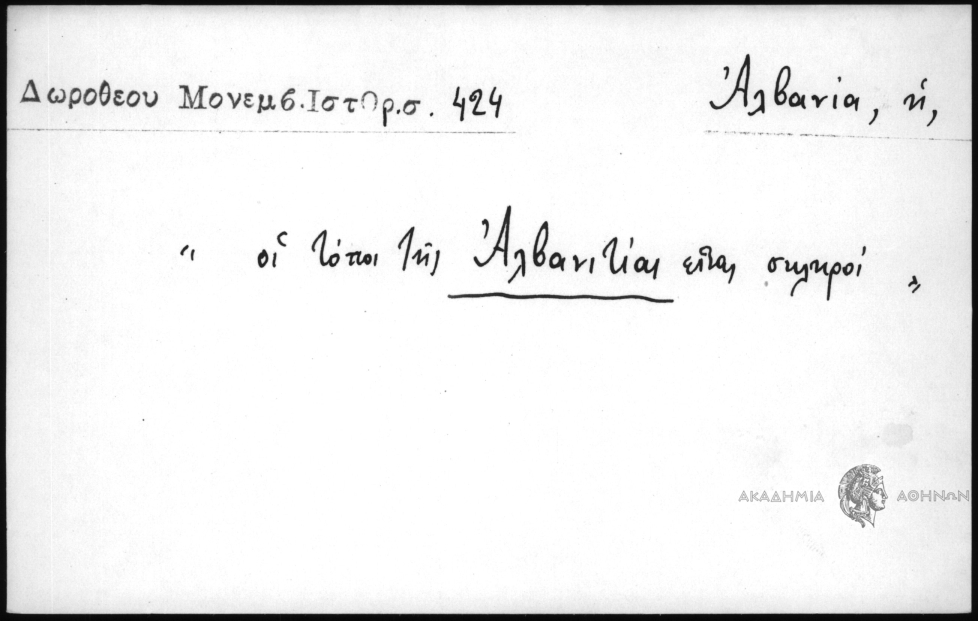 Δωροθεου Μονεμβ.Ιστορ.σ. 424
Ἀλβανία, ἡ,
" οἱ τόποι τῆς Ἀλβανιτίας εἶναι σκληροί "
ΑΚΑΔΗΜΙΑ ΑΘΗΝΩΝ